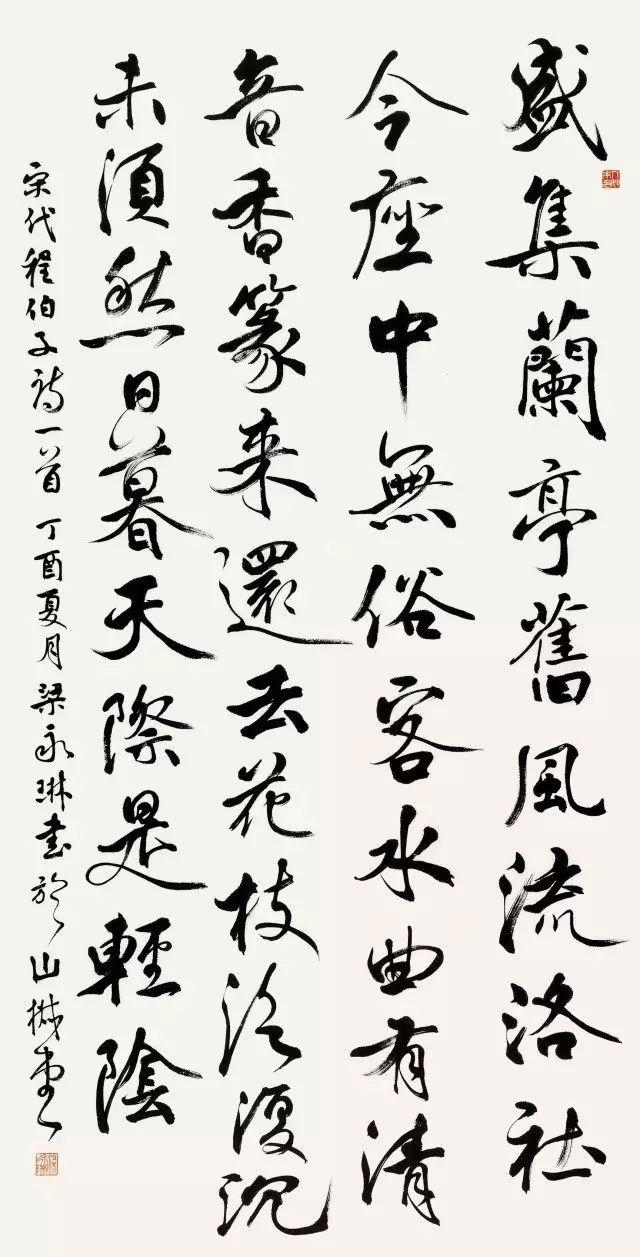 盛集蘭亭舊風流洛社
今座中無俗客水曲有清
音香篆来還去花枝泛復沉
未須愁日暮天際是輕陰
宋代程伯子诗一首丁酉夏月梁永琳书於山樾堂